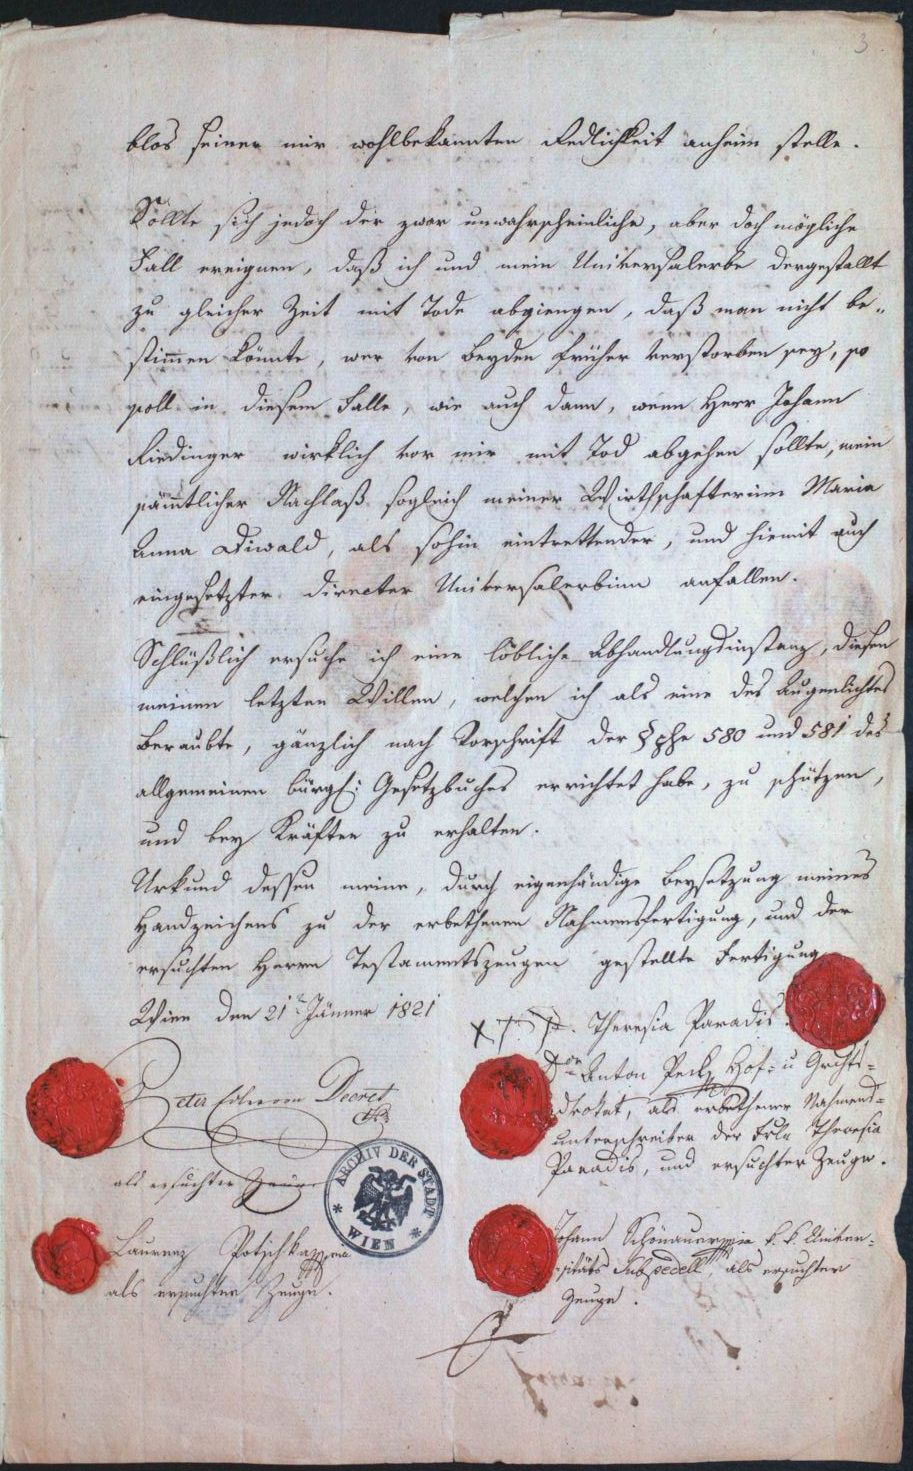 3
blos seiner mir wohlbekannten Redlichkeit anheim stelle.
Sollte sich jedoch der zwar unwahrscheinliche, aber doch mögliche
Fall ereignen, daß ich und mein Universalerbe dergestallt
zu gleicher Zeit mit Tode abgiengen, daß man nicht be„
stimmen könnte, wer von Beyden früher verstorben sey, so
soll in diesem Falle, wie auch dann, wenn Herr Johann
Riedinger wirklich vor mir mit Tod abgehen sollte, mein
sämmtlicher Nachlaß sogleich meiner Wirthschafterinn Maria
Anna Diwald, als sohin eintrettender, und hiemit auch
eingesetzter directer Universalerbinn anfallen.
Schlüßlich ersuche ich eine löbliche Abhandlungsinstanz, diesen
meinen letzten Willen, welchen ich als eine des Augenlichtes
Beraubte, gänzlich nach Vorschrift der §phe 580 und 581 des
allgemeinen bürgl: Gesetzbuches errichtet habe, zu schützen,
und bey Kräften zu erhalten.
Urkund dessen meine, durch eigenhändige Beysetzung meines
Handzeichens zu der erbethenen Nahmensfertigung, und der
ersuchten Herrn Testamentszeugen gestellte Fertigung
Wien den 21t Jänner 1821
Theresia Paradis.
Anton Peck, Hof= u Grchts=
dvokat, als erbethener Nahmens=
unterschreiber der Frln Theresia
Paradis, und ersuchter Zeuge.
Peter Edler von Decret
als ersuchter Zeuge
ARCHIV DER STADT
* WIEN *
Laurenz
als ersuchter Zeuge.
Johann k. k. Univer=
sitäts Subpedell, als ersuchter
Zeuge.